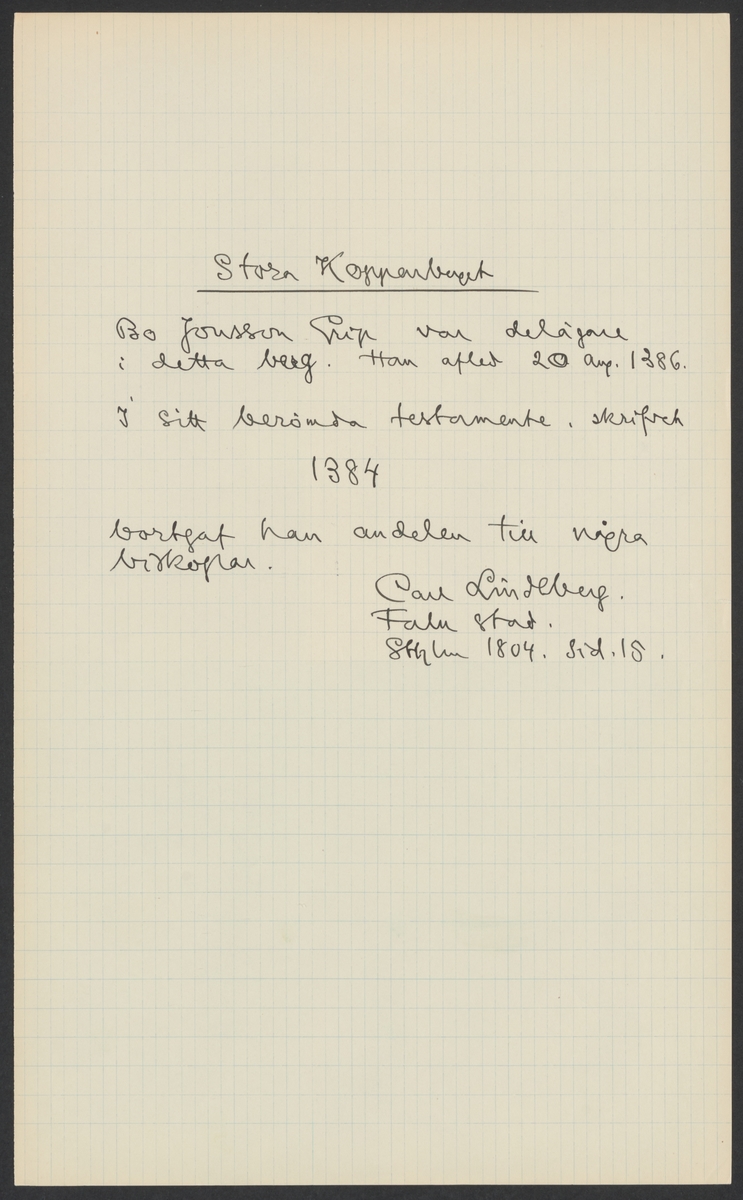 Stora Kopparberget
Bo Jonsson Grip var delägare
i detta berg. Han afled 20 aug. 1386.
I sitt berömda testamente, skrifvet
1384
bortgaf han andelen till några
biskopar.
Carl Lindberg.
Falu stad.
Sthlm 1804. Sid. 15.